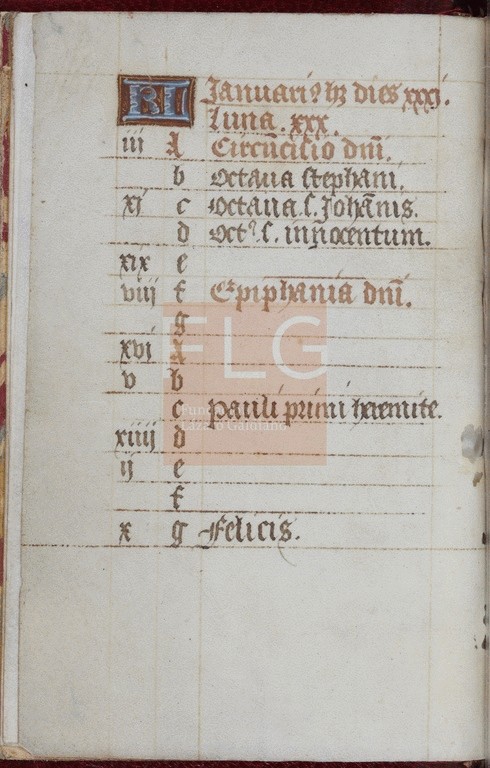 KL Januariꝰ hꝫ dies xxxj.
Luna. xxx.
iij A Circũcisio dñi.
b Octaua stephani.
xj c Octaua s. Johãnis.
d Octᵃ. s. innocentum.
xix e
viij f Epiphania dñi.
g
xvj A
v b
c Pauli primi heremite.
xiiij d
ij e
f
x g Felicis.
FLG
Lázaro Galdiano